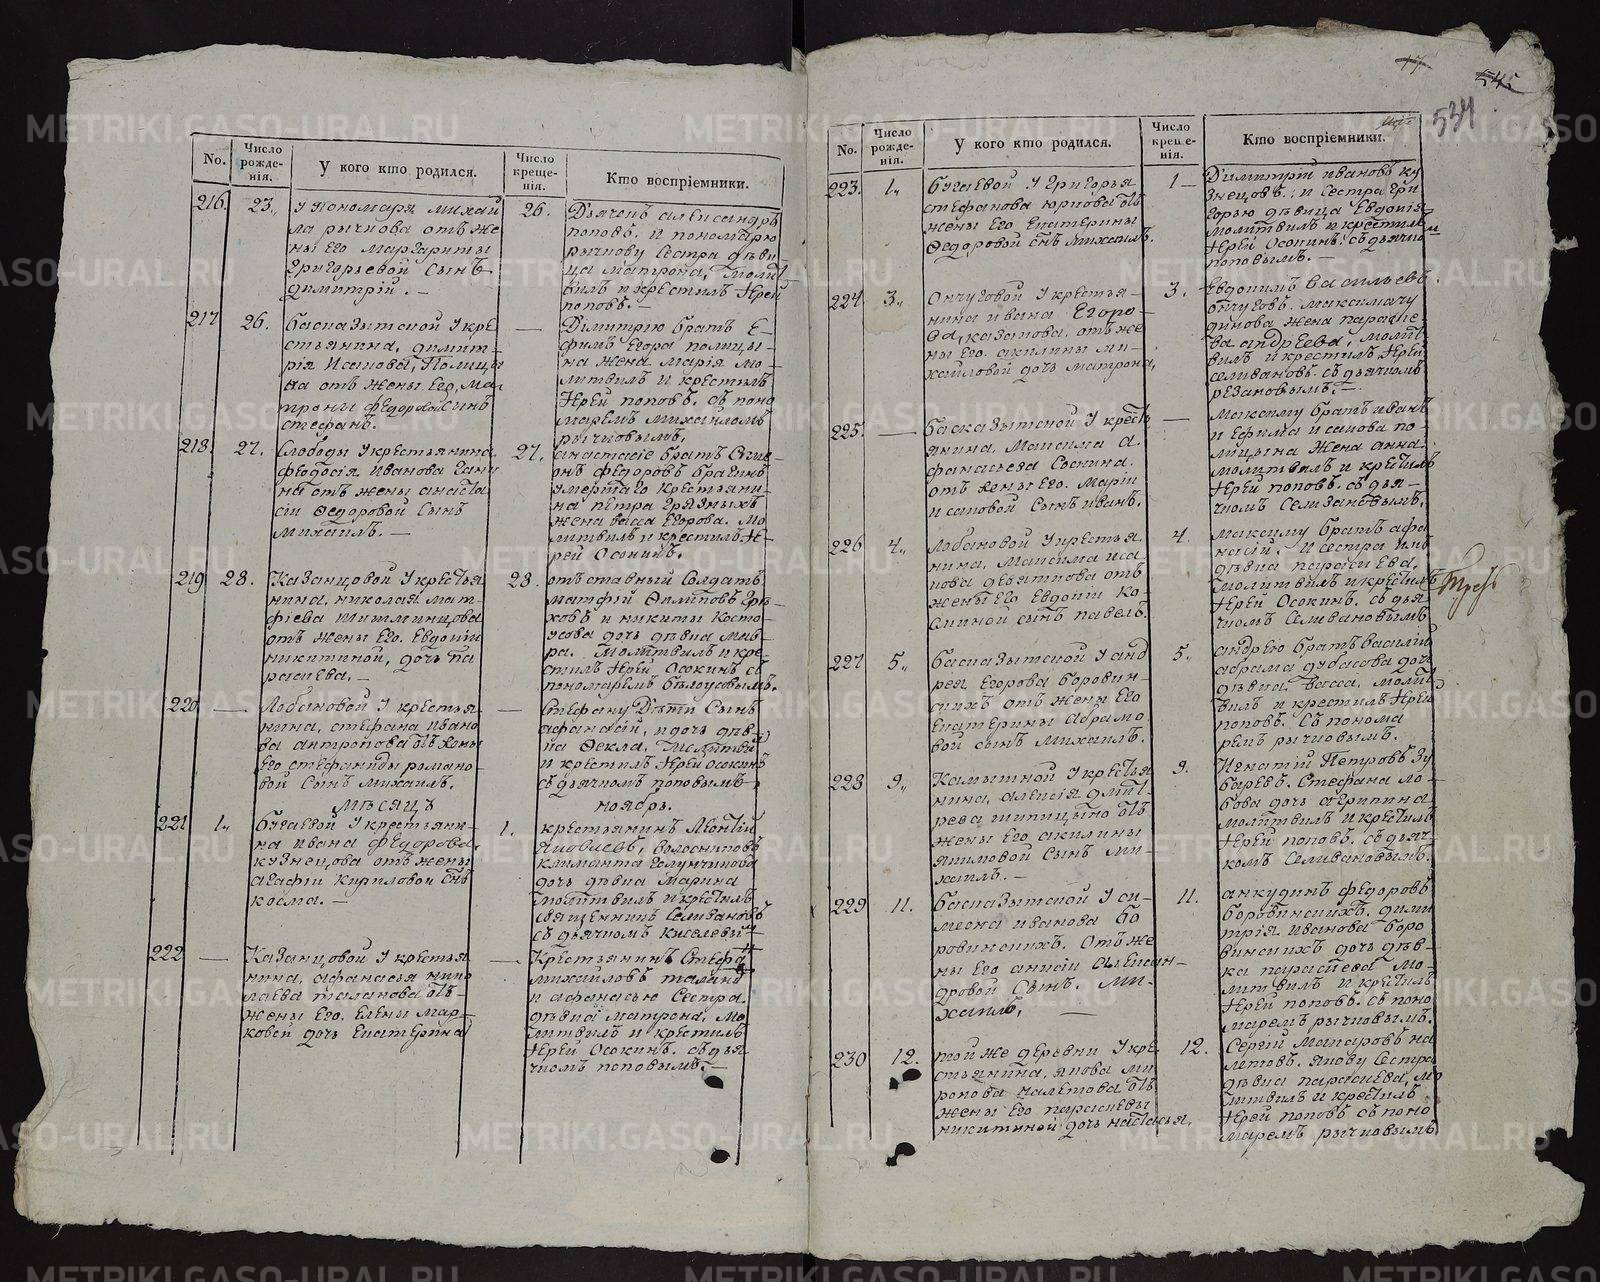 No.
Число рожде-нія.
У кого кто родился.
Число креще-нія.
Кто воспріемники.
216.
23.
У пономаря михай
ла рычкова отъ же
ны Его Маргариты
Григорьевой Сынъ
димитрій. —
26.
Дьячекъ александръ
поповъ. и пономарю
рычкову Сестра дѣви
ца матрона, моли
вилъ и крестилъ Іерей
поповъ. —
217
26.
басказыкской У кре
стьянина, димит
рія Исакова, Полицы
на отъ жены Его, Ма
троны федоровой Сынъ
стефанъ.
—
Димитрію братъ Е-
фимъ Егора полицы-
на жена марія мо-
литвилъ и крестилъ
Іерей поповъ. съ поно
маремъ михайломъ
рычковымъ.
218.
27.
Слободы У крестьянина
феодосія Иванова
на отъ жены анаста
сіи Федоровой Сынъ
михаилъ. —
27.
анастасіе братъ Симе-
онъ федоровъ брагинъ
умершаго крестьяни-
на петра Грязныхъ
жена васса Егорова. Мо
литвилъ и крестилъ Іе-
рей Осокинъ.
219
28.
Казанцовой У крестья
нина, николая мат-
фіева
отъ жены Его. Евдокіи
никитиной, дочь па
раскева. —
28.
отъставный Солдатъ
матфій Филиповъ Грѣ-
ховъ и никиты Косто-
усова дочь дѣвка мав-
ра. Молитвилъ и кре-
стилъ Іерей Осокинъ съ
пономаремъ бѣлоусовымъ.
220
—
Лобановой У крестья
нина, стефана ивано
ва антропова отъ жены
Его стефаниды романо-
вой Сынъ михаилъ.
—
Стефану Дѣти Сынъ
афанасій, и дочь дѣв-
ка Фекла, молитвил
и крестилъ Іерей Осокинъ
съ дьячкомъ поповымъ
мѣсяцъ
ноябрь.
221
1.
бугаевой У крестьяни-
на ивана федорова,
кузнецова отъ жены
агафіи кириловой Снъ
косма. —
1.
крестьянинъ Леонтій
Яковлевъ,
климента
дочь дѣвка Марина
молитвилъ и крестилъ
священникъ Селивановъ
съ дьячкомъ киселевы
222
—
Казанцовой У крестья
нина, афанасья нико
лаева таланова отъ-
жены Его. Елены Мар-
ковой дочь Екатерина
—
Крестьянинъ Стефа
михайловъ талано
и афанасью Сестра.
дѣвка матрона, мо
литвилъ и крестилъ
Іерей Осокинъ. съ дья
чкомъ поповымъ. —
534
No.
Число рожде-нія.
У кого кто родился.
Число креще-нія.
Кто воспріемники.
223.
1.
бугаевой У Григорья
стефанова юркова отъ
жены Его Екатерины
Федоровой снъ михаилъ.
1 —
Димитрій ивановъ ку
знецовъ. и Сестра Гри
горью дѣвица Евдокія
молитвилъ и крестилъ
Іерей Осокинъ. съ дьячко
поповымъ. —
224
3.
Ончуговой У крестья-
нина ивана Егоро-
ва, казакова, отъ же
ны Его. акилины ми-
хайловой дочь матрона,
3.
Евдокимъ васильевъ.
динова жена параске
ва андреева, молит
вилъ и крестилъ Іерей
селивановъ. съ дьячкомъ
резановымъ. —
225.
—
басказыкской У крест
янина, Максима а-
фанасьева Соскина.
отъ жены Его. Маріи
исаковой Сынъ иванъ.
—
Максиму братъ иванъ
и Ефима исакова по-
лицына Жена анна
молитвилъ и крестилъ
Іерей поповъ. съ дья-
чкомъ Селивановымъ.
226
4.
Лобановой У крестья
нина, Максима иса
кова девяткова отъ
жены Его Евдокіи ко-
сминой сынъ павелъ.
4.
Максиму братъ афа
насій. и сестра имъ
дѣвка параскева,
молитвилъ и крестилъ
Іерей Осокинъ. съ дья
чкомъ Селивановымъ
227
5.
басказыкской У анд
рея Егорова боровин-
скихъ отъ жены Его
Екатерины абрамо
вой сынъ михаилъ.
5.
андрею братъ василій
абрама дубасова дочь
дѣвка васса, молит
вилъ и крестилъ Іерей
поповъ. съ понома
ремъ рычковымъ.
228
9.
Камышной У крестья
нина, алексія дмит-
рева шипицына отъ
жены Его акилины
Якимовой Сынъ ми-
хаилъ. —
9.
Игнатій Петровъ Зу
баревъ. Стефана ло-
бова дочь агрипина
молитвилъ и крестилъ
Іерей поповъ. съ дьяч-
комъ Селивановымъ.
229
11.
басказыкской У си-
меона иванова бо
ровинскихъ. отъ же
ны Его анисіи алексан-
дровой Сынъ. Ми-
хаилъ, —
11.
анкудинъ федоровъ
боровинскихъ. дими
трія иванова боро
винскихъ дочь дѣв-
ка параскева мо-
литвилъ и крестилъ
Іерей поповъ. съ поно
маремъ рычковымъ.
230
12.
той же деревни У кре
стьянина, якова ми
ронова налетова отъ
жены Его параскевы
никитиной дочь настасья.
12.
Сергій Макаровъ на
летовъ. якову Сестра
дѣвка параскева, мо
литвилъ и крестилъ
Іерей поповъ съ поно
маремъ рычковымъ